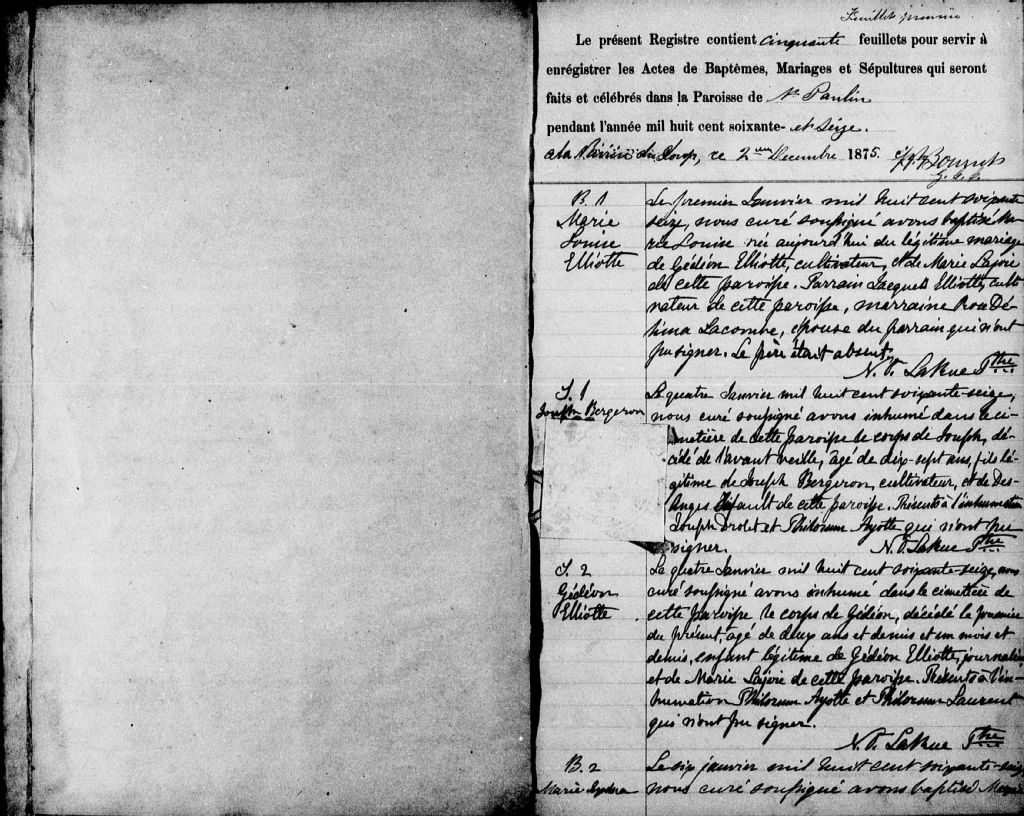 Feuillet premier
Le présent Registre contient cinquante feuillets pour servir à
enrégistrer les Actes de Baptêmes, Mariages et Sépultures qui seront
faits et célébrés dans la Paroisse de St Paulin
pendant l'année mil huit cent soixante- et seize.
a la Rivière du Loup, ce 2 Decembre 1875.
B. 1
Marie
Louise
Elliotte
Le premier Janvier mil huit cent soixante
seize, nous curé soussigné avons baptisé Ma-
rie Louise née aujourd'hui du légitime mariage
de Gédéon Elliotte, cultivateur, et de Marie Lajoie
de cette paroisse. Parrain Jacques Elliotte, culti-
vateur de cette paroisse, marraine Rose Dé-
lima Lacombe, épouse du parrain qui n'ont
pu signer. Le père était absent.
N. T. LaRue Ptre
S. 1
Joseph Bergeron
Le quatre Janvier mil huit cent soixante-seize,
nous curé soussigné avons inhumé dans le ci-
metière de cette paroisse le corps de Joseph, dé-
cédé de l'avant veille, agé de dix-sept ans, fils lé-
gitime de Joseph Bergeron, cultivateur, et de Des-
Anges de cette paroisse. Présents à l'inhumation
Joseph Drolet et Philorum Ayotte qui n'ont pu
signer.
N. T. LaRue Ptre
S. 2
Gédéon
Elliotte
Le quatre Janvier mil huit cent soixante-seize, nous
curé soussigné avons inhumé dans le cimetière de
cette paroisse le corps de Gédéon, décédé le premier
du présent, agé de deux ans et demis et un mois et
demis, enfant légitime de Gédéon Elliotte, journalier
et de Marie Lajoie de cette paroisse. Présents à l'in-
humation Philorum Ayotte et Philorum Laurent
qui n'ont pu signer.
N. T. LaRue Ptre
B. 2
Marie
Le six janvier mil huit cent soixante-seize
nous curé soussigné avons baptisé Marie